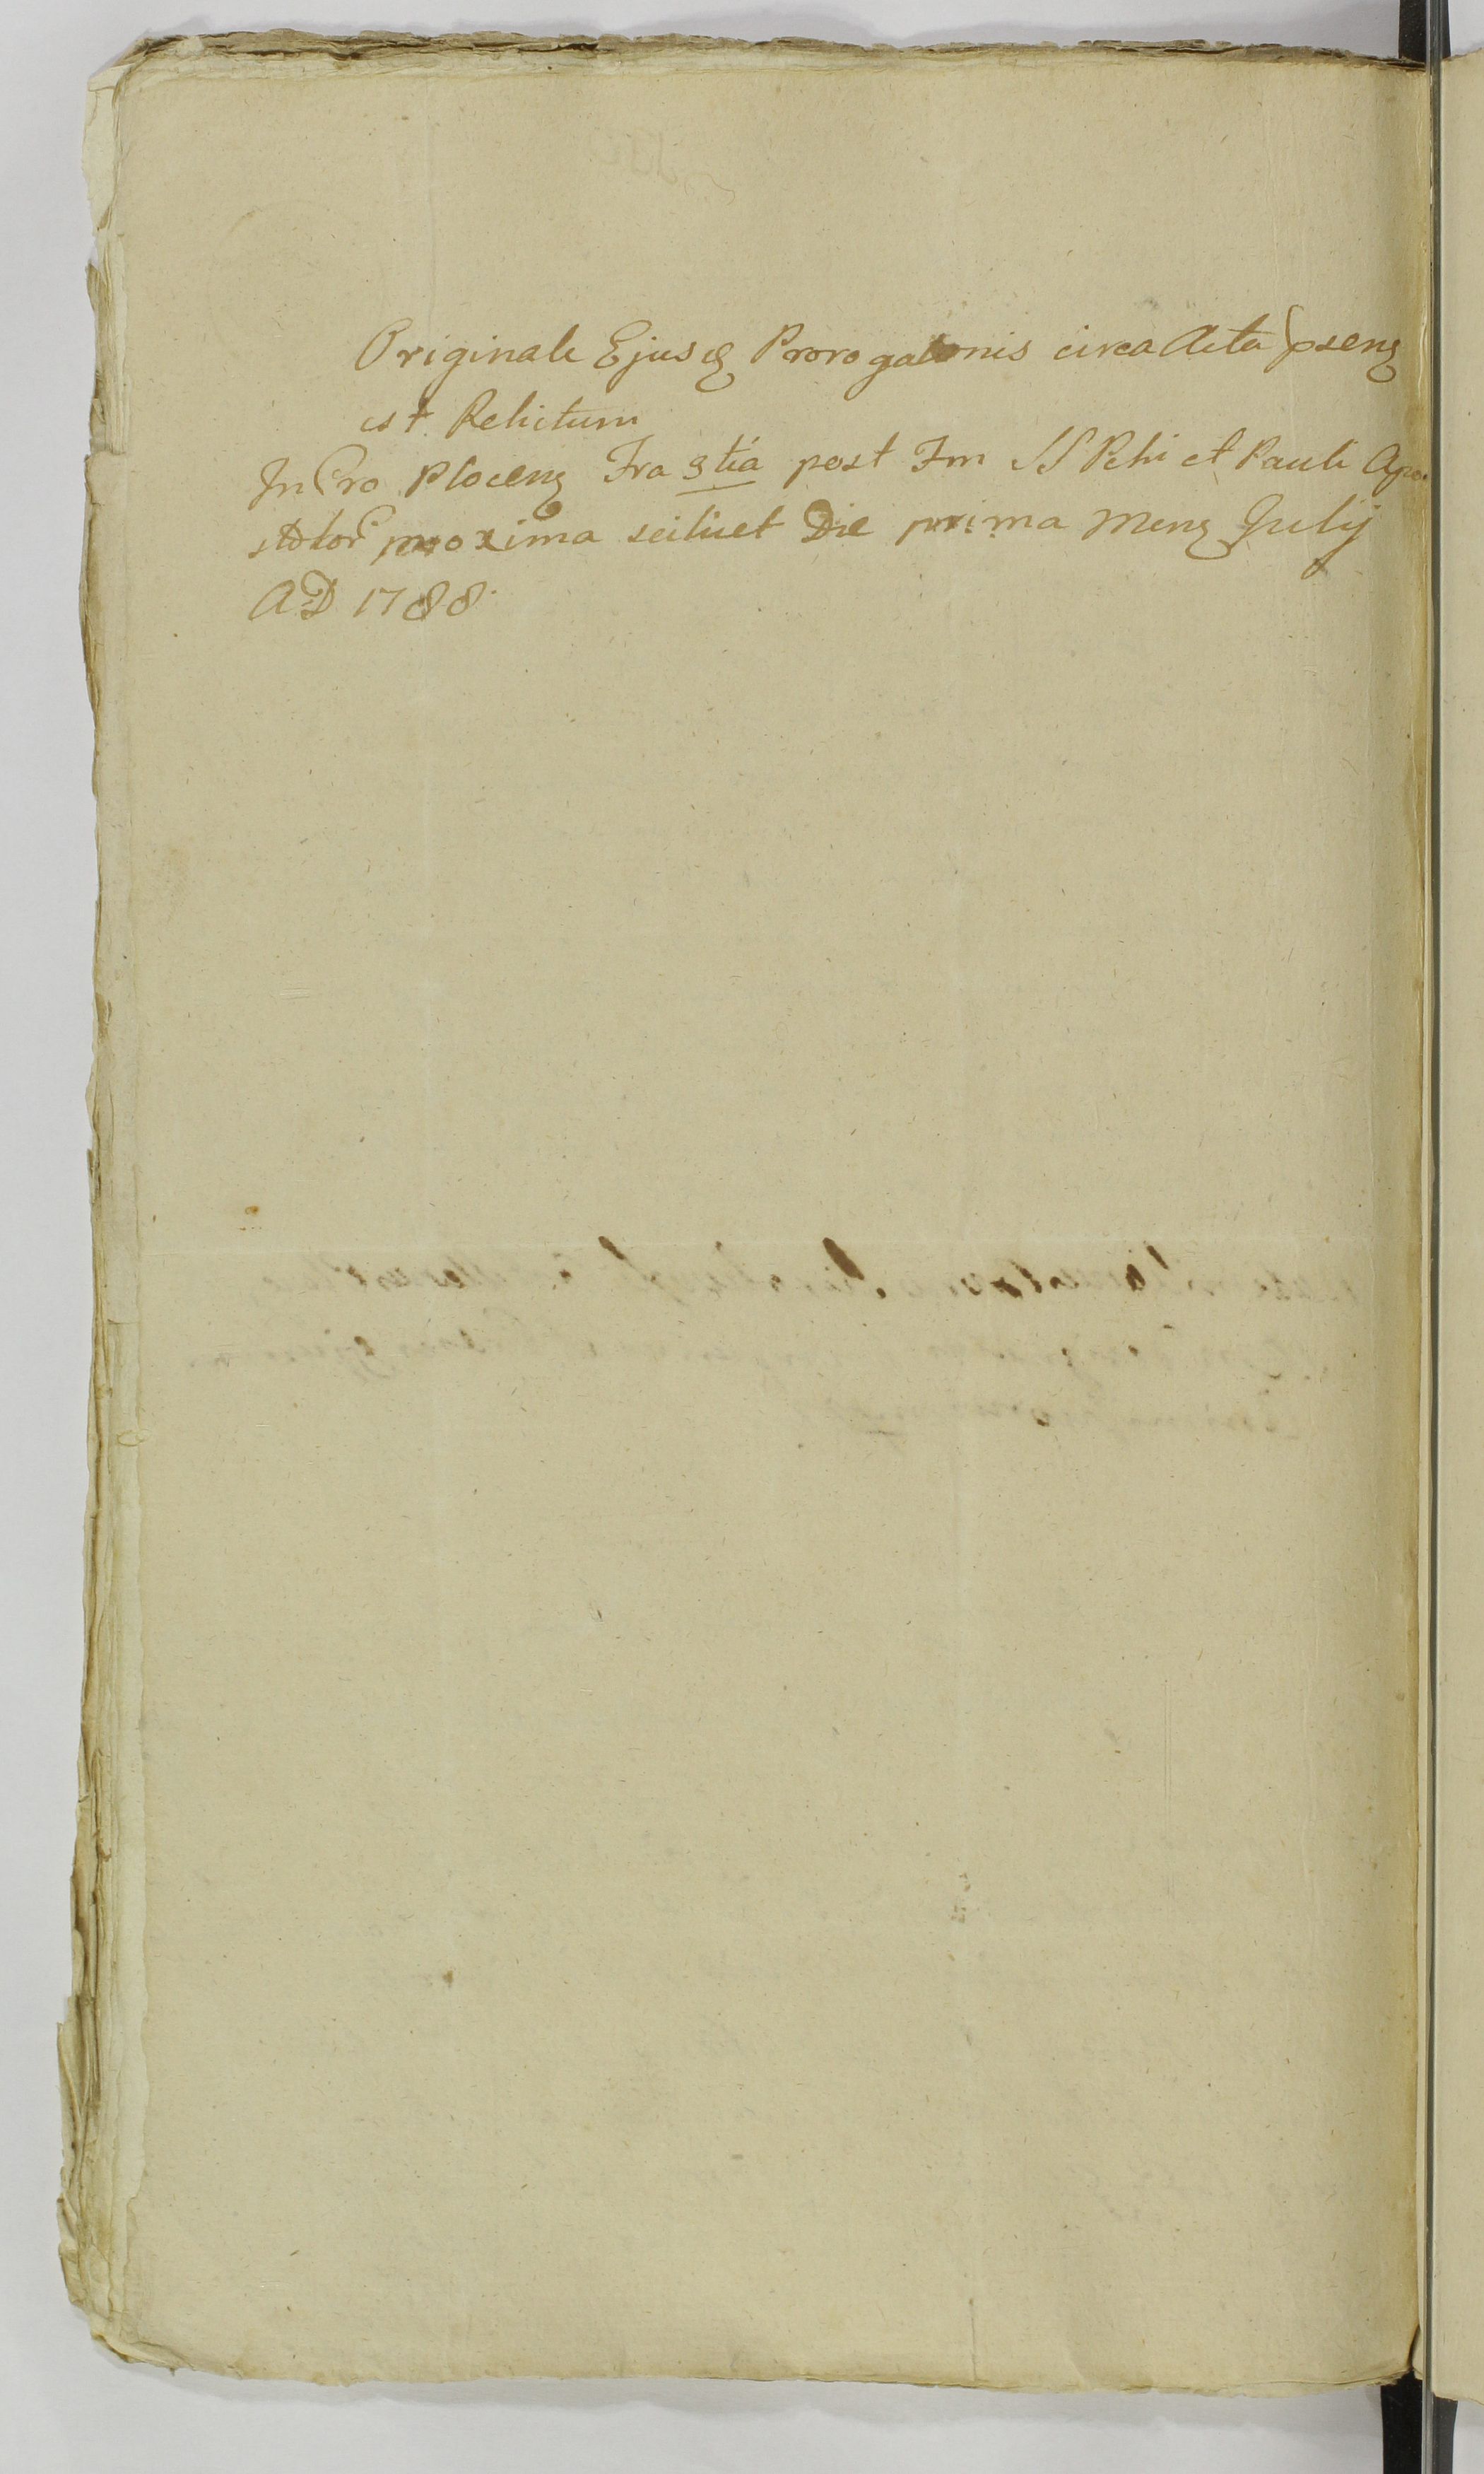 Originale Ejusq Prorogaonis circa Acta pseng
est Relictum
In Cro Ploceng Fra 3 tia post Fm SS Petri et Pauli Apo
stolor proxima scilicet Die prima Meng Julij
AD 1788.